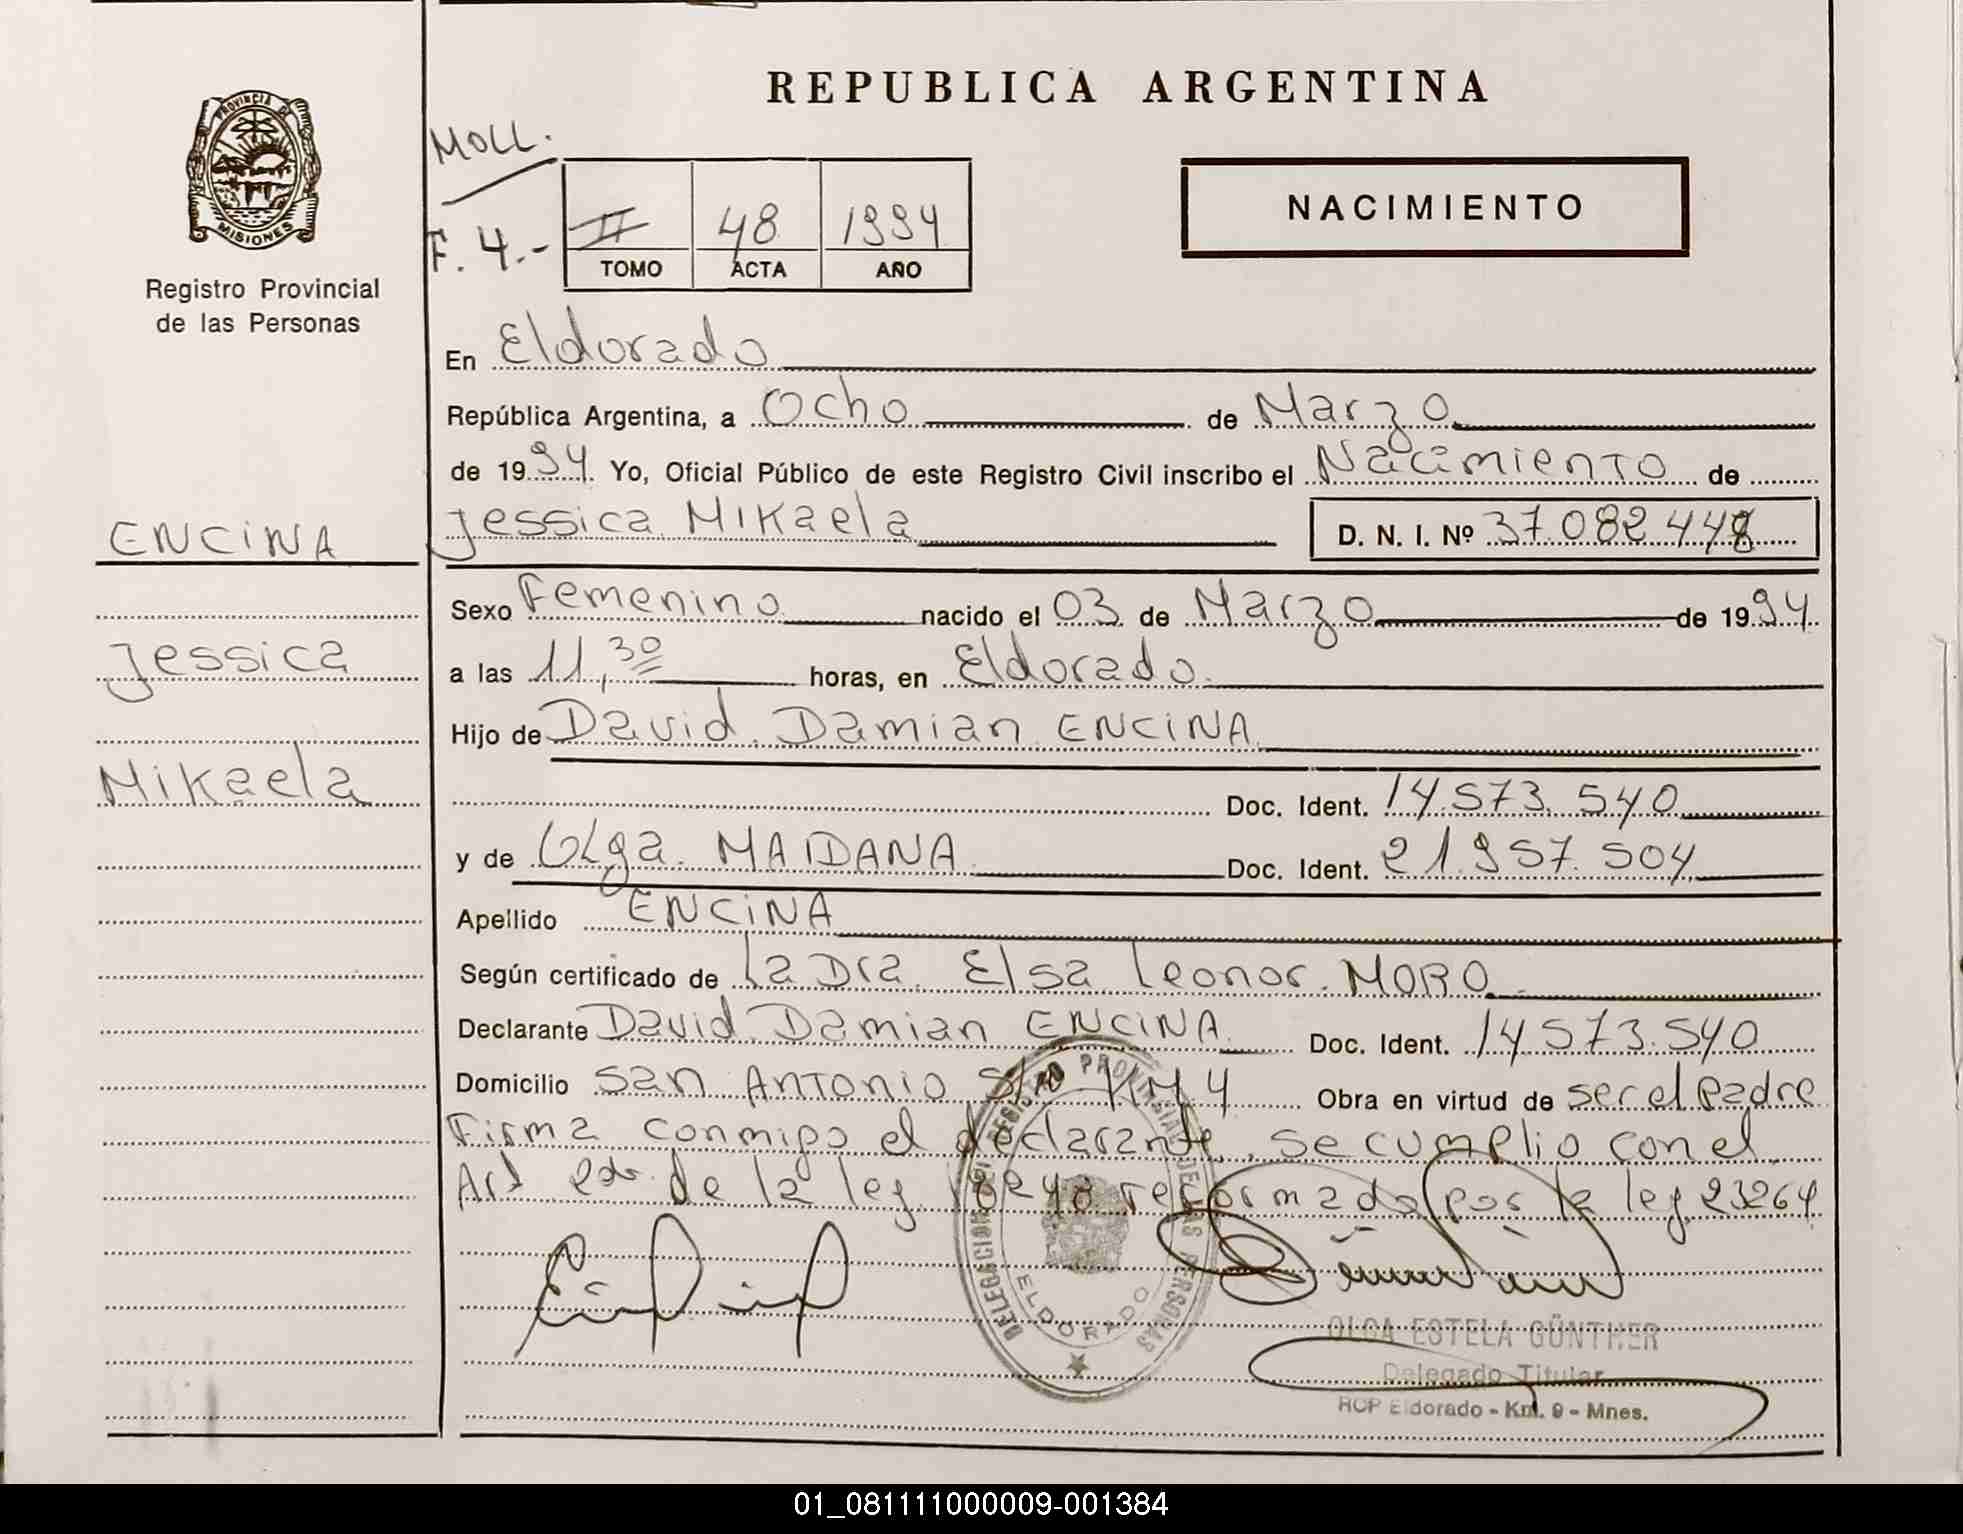 REPUBLICA ARGENTINA
PROVINCIA DE
MISIONES
Registro Provincial
de las Personas
MOLL.
F. 4.-
II 48 1994
TOMO ACTA AÑO
NACIMIENTO
En Eldorado
República Argentina, a Ocho de Marzo
de 1994. Yo, Oficial Público de este Registro Civil inscribo el Nacimiento de
Jessica Mikaela D. N. I. Nº 37.082.448
ENCINA
Jessica
Mikaela
Sexo Femenino nacido el 03 de Marzo de 1994
a las 11,30 horas, en Eldorado
Hijo de David Damian ENCINA
Doc. Ident. 14.573.540
y de Olga MAIDANA Doc. Ident. 21.957.504
Apellido ENCINA
Según certificado de La Dra Elsa Leonor MORO
Declarante David Damian ENCINA Doc. Ident. 14573.540
Domicilio San Antonio S/N KM 4 Obra en virtud de ser el padre
Firma conmigo el declarante, se cumplio con el
Art de la ley reformado por la ley 23264
DELEGACION DEL REGISTRO PROVINCIAL DE LAS PERSONAS
ELDORADO
OLGA ESTELA GÜNTHER
Delegado Titular
RCP Eldorado - Km. 9 - Mnes.
01_081111000009-001384